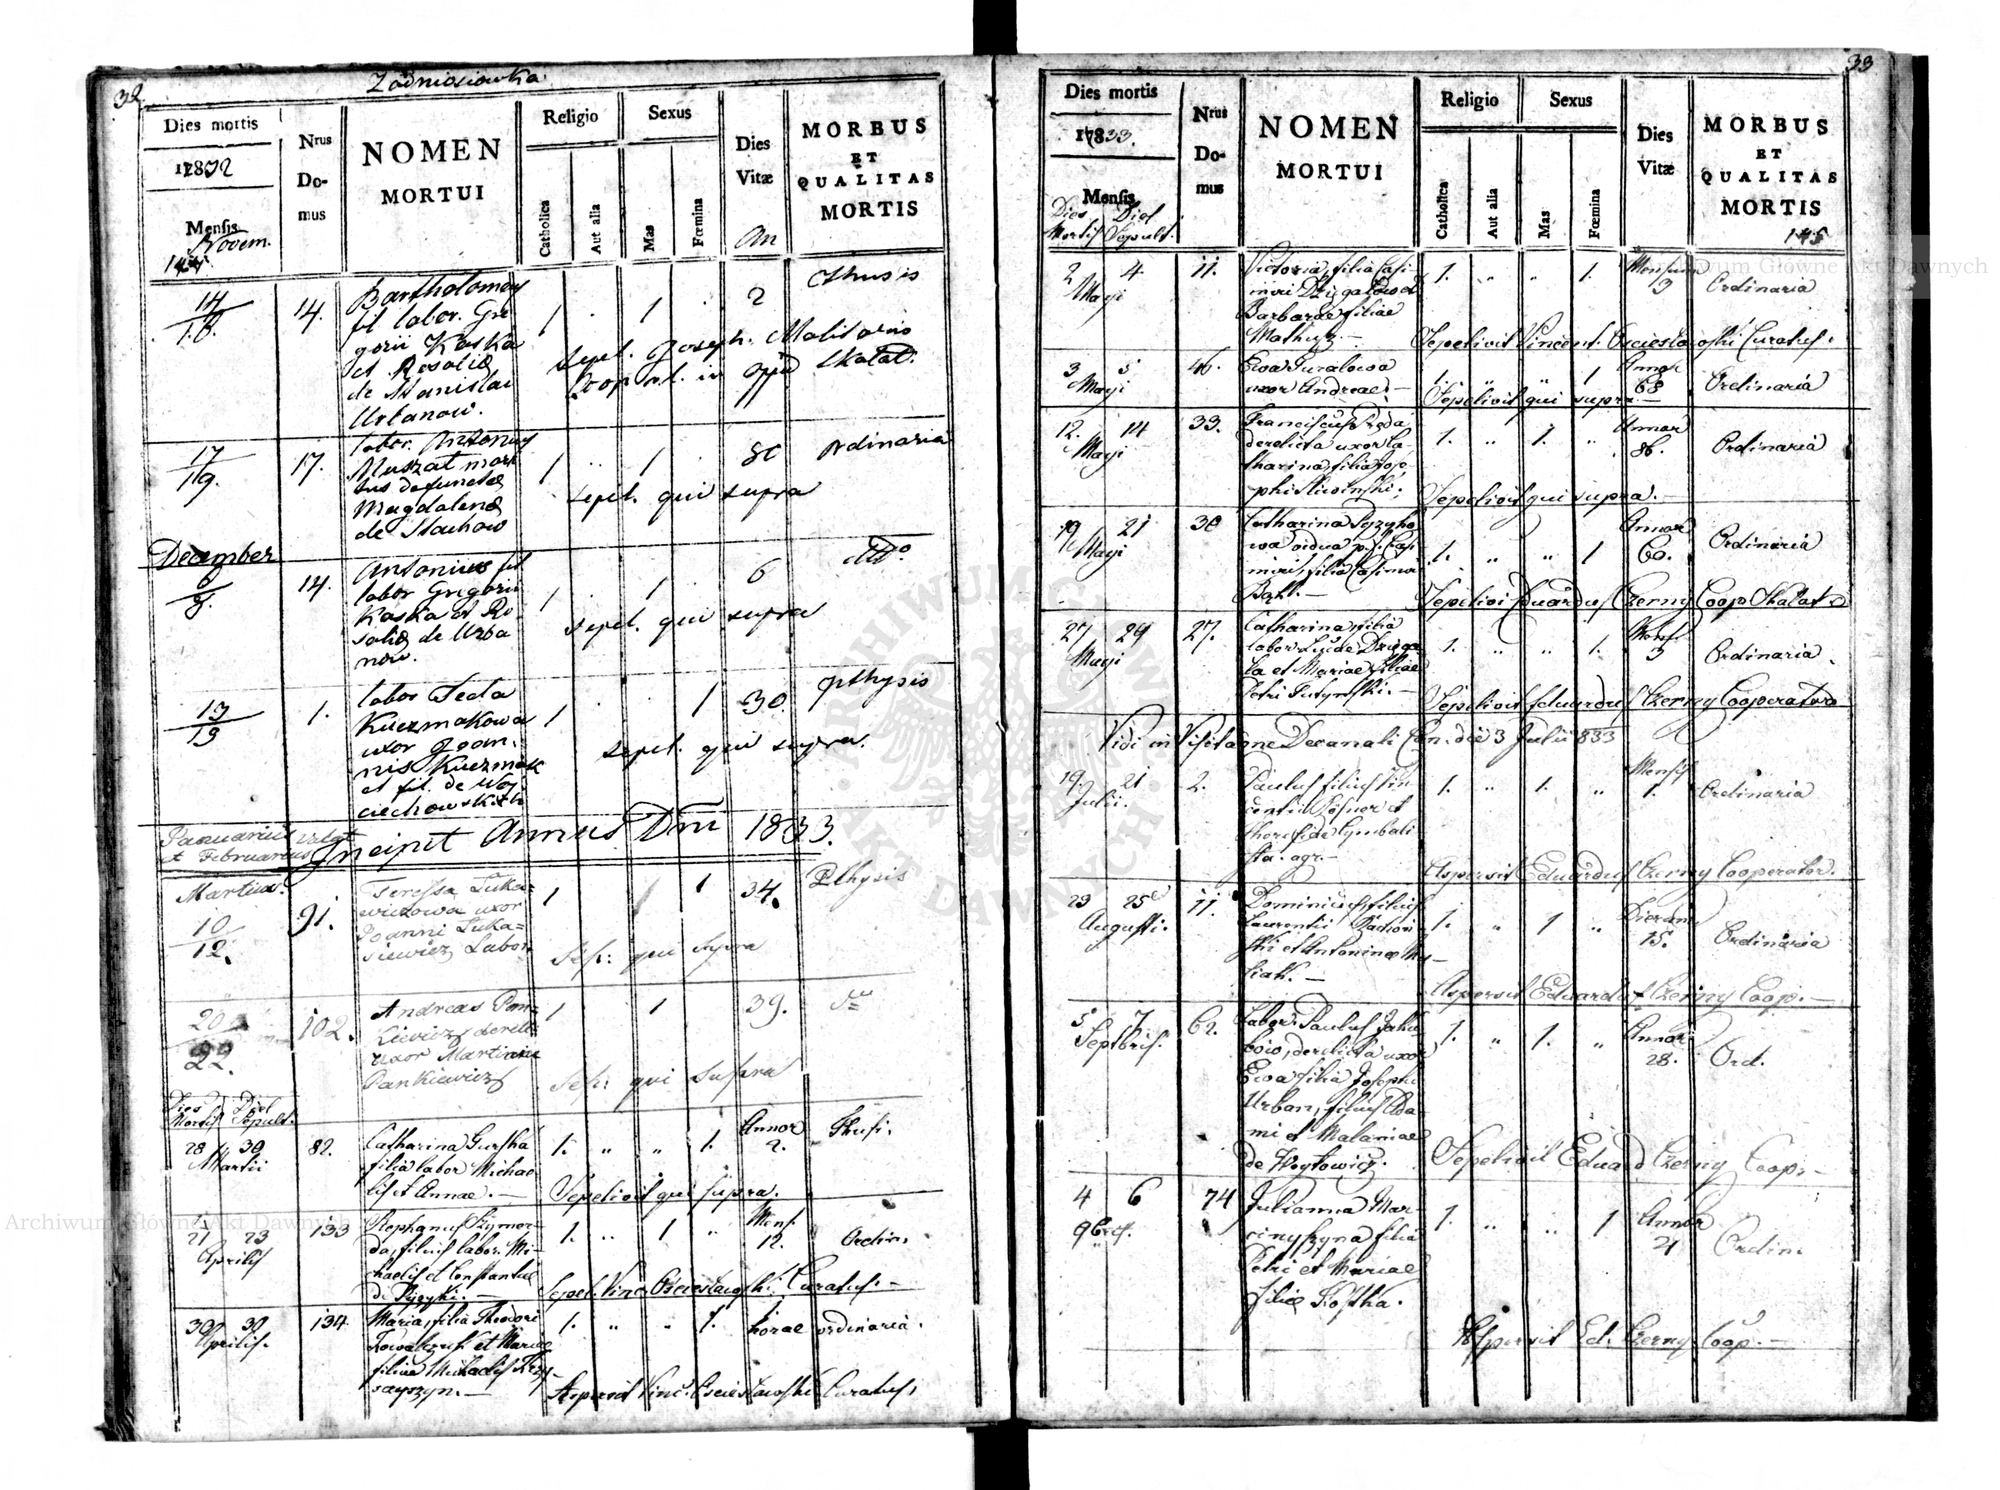 32
Zadniosiowka
Dies mortis
1832
Mensis
Novem.
Nrus
Do-
mus
NOMEN
MORTUI
Religio
Catholica
Aut alia
Sexus
Mas
Fœmina
Dies
Vitæ
An
MORBUS
ET
QUALITAS
MORTIS
14
18.
14.
Bartholomey
fil labor. Gre
gorii Kaska
et Rosaliæ
de Stanislai
Urbanow.
1 . 1 . 2
sepel. Joseph.
Coop
17
19.
17.
labor. Antoniy
Muszat mari
tus defunctæ
Magdalenæ
de Stachow
1 . 1 ordinaria
sepel. qui supra
December
8.
14.
Antonius fil
labor Gregorii
Kaska et Ro
saliæ de Urba
now.
1 . 1 . 6 dtto.
sepel. qui supra
13
15
1.
labor Tecla
Kuczmakowa
uxor Joan-
nis Kuczmak
et fil. de Woy
ciechowskich
1 . . 1 30 pthysis
sepel. qui supra.
Januarius vacat
et Februarius
Incipit Annus Dni 1833.
Martius.
10
12.
91.
Teressa Luka-
wiczowa uxor
Joanni Luka-
siewicz Labor
1 1 34. Pthysis
Sep: qui supra
20
22.
102.
Andreas Pan-
kiewicz derelic
uxor Martinnae
Pankiewicz
1 1 39.
Sep: qui supra
Dies Diel
Mortis Sepult.
28 30
Martii
82.
Catharina Gurska
filia labor Michae
lis et Annae. —
1. „ „ 1. Annor
2. Thusi.
Sepelivit qui supra.
21 23
Aprilis
133
Stephanus Szymor-
da, filius labor. Mi-
chaelis et Constantiae
1. „ 1 „ Mens.
12. Ordin.
Sepel. Vinc. Oscieslawski Curatus. —
30 30
Aprilis.
134.
Maria, filia Theodori
Kowalczuk et Mariae
filiae Michaelis
1. „ „ 1. horae ordinaria.
Aspersit Vinc. Oscieslawski Curatus,
33
Dies mortis
1833.
Mensis
Dies Diel
Mortis Sepult.
Nrus
Do-
mus
NOMEN
MORTUI
Religio
Catholica
Aut alia
Sexus
Mas
Fœmina
Dies
Vitæ
MORBUS
ET
QUALITAS
MORTIS
145
2 4
Mayi
11.
Victoria, filia Casi-
miri
Barbarae filiae
Mathuz —
1. „ „ 1. Mensium
3 Ordinaria
Sepelivit Vincent. Oscieslawski Curatus.
3 5
Mayi
46.
Ewa Guralowa
uxor Andreae. —
1. „ „ 1 Annor
68 Ordinaria
Sepelivit qui supra —
12. 14
Mayi
33.
Franciscus
derelicta uxor Ca-
tharina, filia Jose-
phi Sliwinski.
1. „ 1. „ Annor
86. Ordinaria
Sepelivit qui supra. —
19 21
Mayi
30
Catharina
wa vidua p. d. Casi-
miri, filia Casimiri
Bąk. —
1. „ „ 1 Annor
60. Ordinaria
Sepelivi Eduardus Czerny Coop Skalat
27 29
Mayi
27.
Catharina, filia
labor. Lucae Dziega-
la et Mariae filiae
Petri
1. „ „ 1. Mens
3 Ordinaria
Sepelivit Eduardus Czerny Cooperator
Vidi in Visitatione Decanali Can. die 3 Julii 833
19. 21
Julii.
2.
Paulus filius Vin-
centii
Theresiae Cymbali
sta. agr. —
1. „ 1. „ Mensis
1. Ordinaria
Aspersit Eduardus Czerny Cooperator.
23 25
Augusti.
11.
Dominicus, filius
Laurentii Radion
ski et Antoninae
1. „ 1 „ Dierum
15. Ordinaria
Aspersit Eduardus Czerny Coop. —
5 7
Septbris.
62.
Labor: Paulus Jaku
bow, derelicta uxor
Ewa filia Josephi
Urban, filius Ada-
mi et Malaniae
de Woytowicz.
1. „ 1. „ Annor
28. Ord.
Sepelivit Eduard Czerny Coop. —
4 6
9bris.
74
Julianna Mar-
cinyszyna filia
Petri et Mariae
filiae Kostka.
1. „ „ 1 Annor
21 Ordin.
Aspersit Ed. Czerny Coop. —
ARCHIWUM GŁÓWNE AKT DAWNYCH
Archiwum Główne Akt Dawnych
Archiwum Główne Akt Dawnych